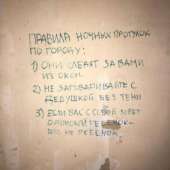 ПРАВИЛА НОЧНЫХ ПРОГУЛОК
ПО ГОРОДУ:
1) ОНИ СЛЕДЯТ ЗА ВАМИ
ИЗ ОКОН.
2) НЕ ЗАГОВАРИВАЙТЕ С
ДЕДУШКОЙ БЕЗ ТЕНИ
3) ЕСЛИ ВАС С СОБОЙ
РЕБЕНОК-
ЭТО НЕ РЕБЕНОК.